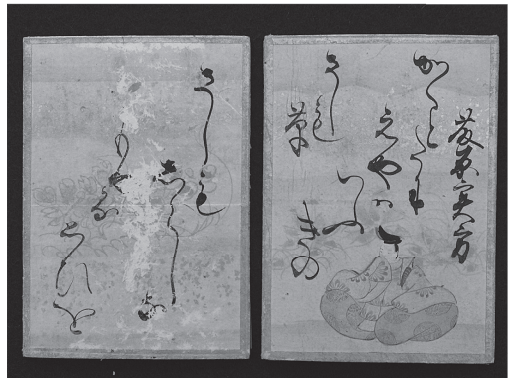 藤原実方
かくとたに
えやは
いふ
きの
さしも
草
さしも
しらし
な
もゆる
思ひを